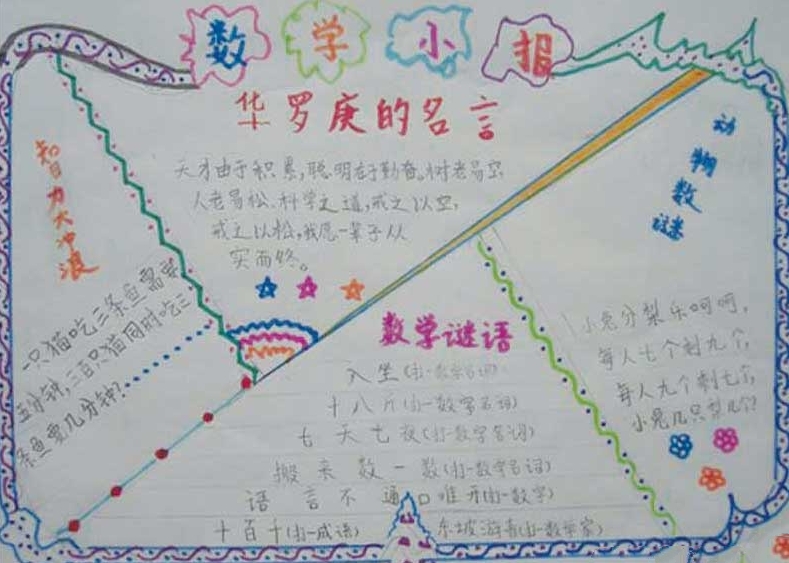 数学小报
华罗庚的名言
天才由于积累,聪明在于勤奋。树老易空,
人老易松,科学之道,戒之以空,
戒之以松,我愿一辈子从
实而终。
智力大冲浪
一只猫吃三条鱼需要
五分钟,三百只猫同时吃三
条鱼要几分钟?
数学谜语
入坐(打一数学名词)
十八斤(打一数学名词)
七天七夜(打一数学名词)
搬来数一数(打一数学名词)
语言不通口难开(打一数字)
十百千(打一成语)
东坡游春(打一数学家)
动物数谜
小兔分梨乐呵呵,
每人七个剩九个,
每人九个剩七个,
小兔几只梨几个?